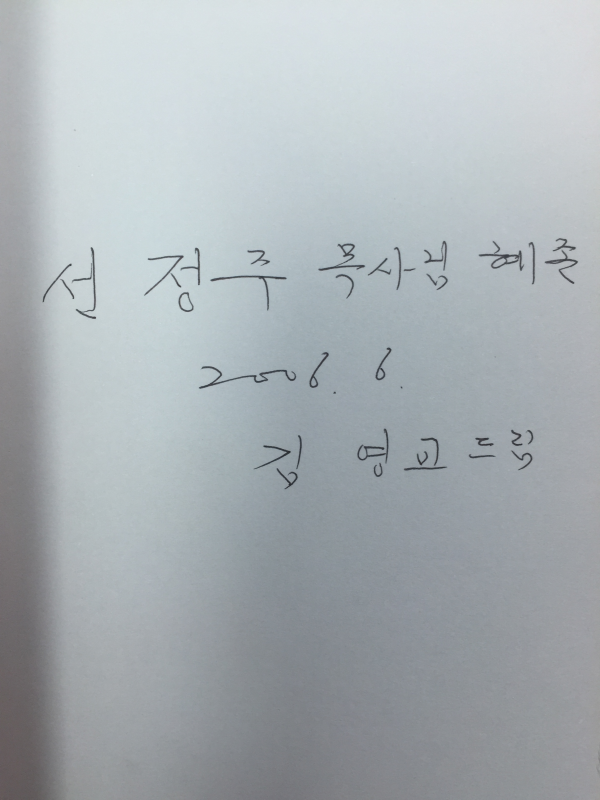 선 정주 목사님 혜존
2006. 6.
김 영교 드림